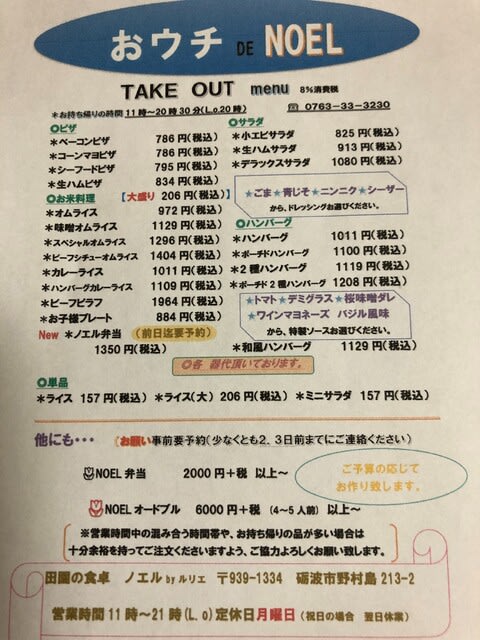 おウチ DE NOEL
TAKE OUT menu 8%消費税
*お持ち帰りの時間 11時～20時30分(L.o.20時) ☎ 0763-33-3230
◎ピザ
*ベーコンピザ 786円(税込)
*コーンマヨピザ 786円(税込)
*シーフードピザ 795円(税込)
*生ハムピザ 834円(税込)
◎お米料理 【大盛り 206円(税込)】
*オムライス 972円(税込)
*味噌オムライス 1129円(税込)
*スペシャルオムライス 1296円(税込)
*ビーフシチューオムライス 1404円(税込)
*カレーライス 1011円(税込)
*ハンバーグカレーライス 1109円(税込)
*ビーフピラフ 1964円(税込)
*お子様プレート 884円(税込)
New *ノエル弁当 (前日迄要予約)
1350円(税込)
◎サラダ
*小エビサラダ 825円(税込)
*生ハムサラダ 913円(税込)
*デラックスサラダ 1080円(税込)
★ごま★青じそ★ニンニク★シーザー
から、ドレッシングお選びください。
◎ハンバーグ
*ハンバーグ 1011円(税込)
*ポーチドハンバーグ 1100円(税込)
*2種ハンバーグ 1119円(税込)
*ポーチド2種ハンバーグ 1208円(税込)
★トマト★デミグラス★桜味噌ダレ
★ワインマヨネーズ バジル風味
から、特製ソースお選びください。
*和風ハンバーグ 1129円(税込)
◎各 器代頂いております。
◎単品
*ライス 157円(税込) *ライス(大) 206円(税込) *ミニサラダ 157円(税込)
他にも・・・ (お願い事前要予約(少なくとも2、3日前までにご連絡ください)
NOEL弁当 2000円+税 以上～
ご予算の応じて
お作り致します。
NOELオードブル 6000円+税 (4～5人前) 以上～
※営業時間中の混み合う時間帯や、お持ち帰りの品が多い場合は
十分余裕を持ってご注文くださいますよう、ご協力よろしくお願い致します。
田園の食卓 ノエル by ルリエ 〒939-1334 砺波市野村島213-2
営業時間11時～21時(L.o)定休日月曜日(祝日の場合 翌日休業)